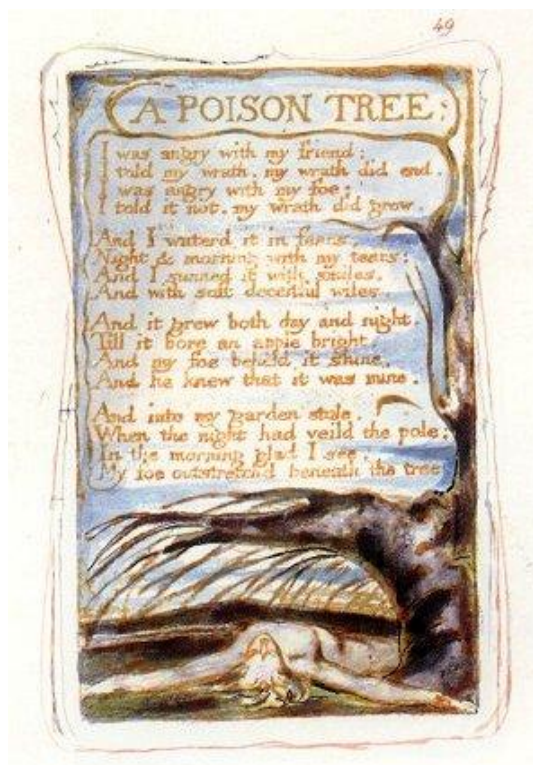 49
A POISON TREE.
I was angry with my friend:
I told my wrath, my wrath did end.
I was angry with my foe:
I told it not, my wrath did grow.
And I waterd it in fears,
Night & morning with my tears:
And I sunned it with smiles,
And with soft deceitful wiles.
And it grew both day and night.
Till it bore an apple bright.
And my foe beheld it shine,
And he knew that it was mine.
And into my garden stole,
When the night had veild the pole;
In the morning glad I see;
My foe outstretchd beneath the tree